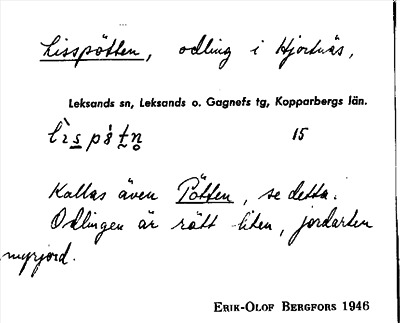 Lisspötten, odling i Hjortnäs,
Leksands sn, Leksands o. Gagnefs tg, Kopparbergs län.
15
Kallas även Pötten, se detta.
Odlingen är rätt liten, jordarten
myrjord.
ERIK-OLOF BERGFORS 1946